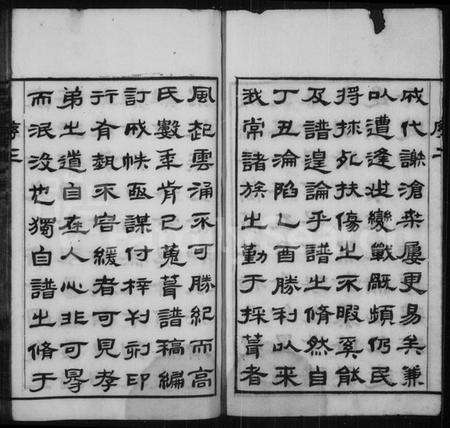 成代謝滄桑屢更易矣兼
以遭逢世變戰厥頻仍民
將捄死扶傷之不暇奚能
及譜遑論乎譜之脩然自
丁丑淪陷乙酉勝利以來
我常諸族之勤于採葺者
風起雲涌不可勝紀而高
氏數年肯已蒐葺譜稿編
訂成帙亟謀付梓刊刷印
行有埶不容緩者可見孝
弟之道自在人心非可畧
而泯沒也獨自譜之脩于
序三